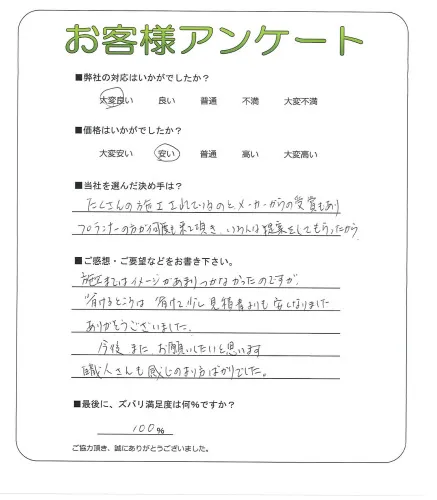 お客様アンケート
■弊社の対応はいかがでしたか?
大変良い 良い 普通 不満 大変不満
■価格はいかがでしたか?
大変安い 安い 普通 高い 大変高い
■当社を選んだ決め手は?
たくさんの施工されているのと、メーカーからの受賞もあり
プランナーの方が何度も来て頂き、いろんな提案をしてもらったから
■ご感想・ご要望などをお書き下さい。
施工まではイメージがあまりつかなかったのですが、
省けるところは省けて少し見積書よりも安くなりました
ありがとうございました。
今後また、お願いしたいと思います
職人さんも感じのより方ばかりでした。
■最後に、ズバリ満足度は何%ですか?
100%
ご協力頂き、誠にありがとうございました。